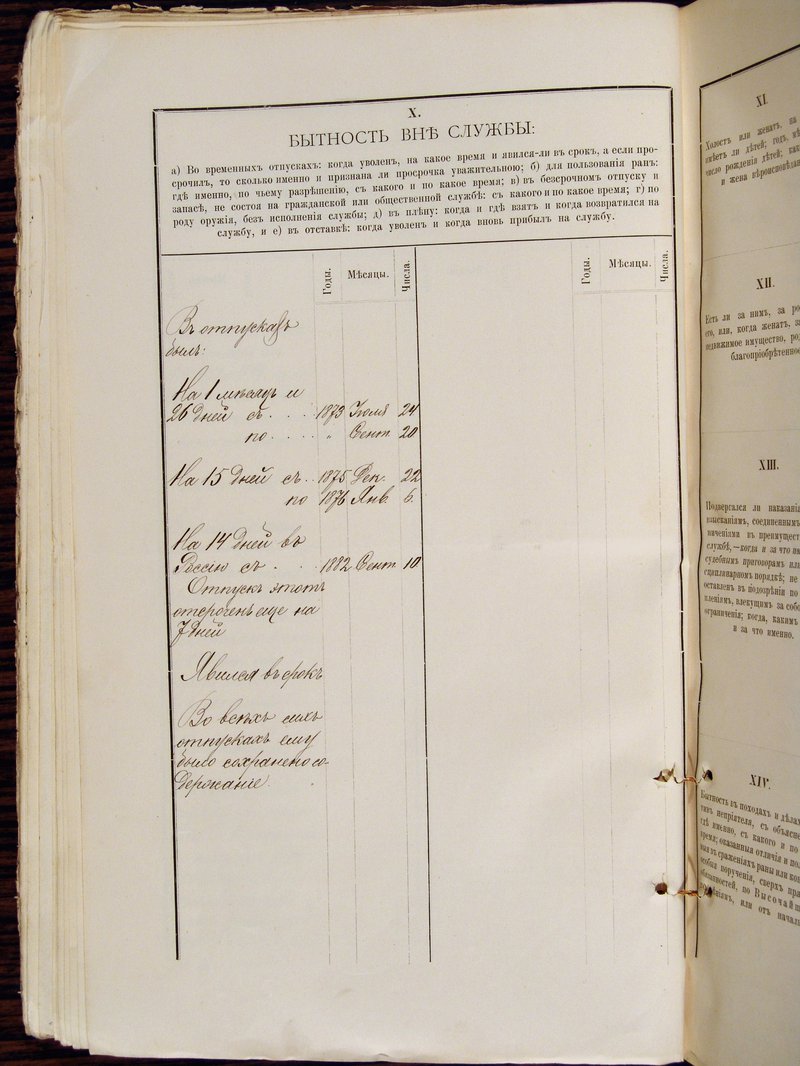 X.
БЫТНОСТЬ ВНѢ СЛУЖБЫ:
а) Во временныхъ отпускахъ: когда уволенъ, на какое время и явился-ли въ срокъ, а если про-
срочилъ, то сколько именно и признана ли просрочка уважительною; б) для пользованія ранъ:
гдѣ именно, по чьему разрѣшенію, съ какого и по какое время; в) въ безсрочномъ отпуску и
запасѣ, не состоя на гражданской или общественной службѣ: съ какого и по какое время; г) по
роду оружія, безъ исполненія службы; д) въ плѣну: когда и гдѣ взятъ и когда возвратился на
службу, и е) въ отставкѣ: когда уволенъ и когда вновь прибылъ на службу.
Годы. Мѣсяцы. Числа. Годы. Мѣсяцы. Числа.
Въ отпускахъ
былъ:
На 1 мѣсяцъ и
26 дней съ . . . 1873 Іюля 24
по . . . . „ Сент. 20
На 15 дней съ . . 1875 Дек. 22
по 1876 Янв. 6.
На 14 дней въ
Россію съ . . . 1882 Сент. 10
Отпускъ этотъ
отсроченъ еще на
7 дней
Явился въ срокъ
Во всѣхъ сихъ
отпускахъ ему
было сохранено со-
держаніе.
XI.
Холостъ или женатъ, на
имѣетъ ли дѣтей; годъ, мѣ
число рожденія дѣтей; как
и жена вѣроисповѣдан
XII.
Есть ли за нимъ, за ро
его, или, когда женатъ, з
недвижимое имущество, ро
благопріобрѣтенно
XIII.
Подвергался ли наказані
взысканіямъ, соединеннымъ
ниченіями въ преимущест
службѣ,—когда и за что им
судебнымъ приговорамъ или
сциплинарномъ порядкѣ; не
оставленъ въ подозрѣніи по
пленіямъ, влекущимъ за собо
ограниченія; когда, какимъ
и за что именно.
XIV.
Бытность въ походахъ и дѣлах
тивъ непріятеля, съ объясне
гдѣ именно, съ какого и по
время; оказанныя отличія и по
ныя въ сраженіяхъ раны или кон
особыя порученія, сверхъ пря
обязанностей, по Высочайш
или отъ начал